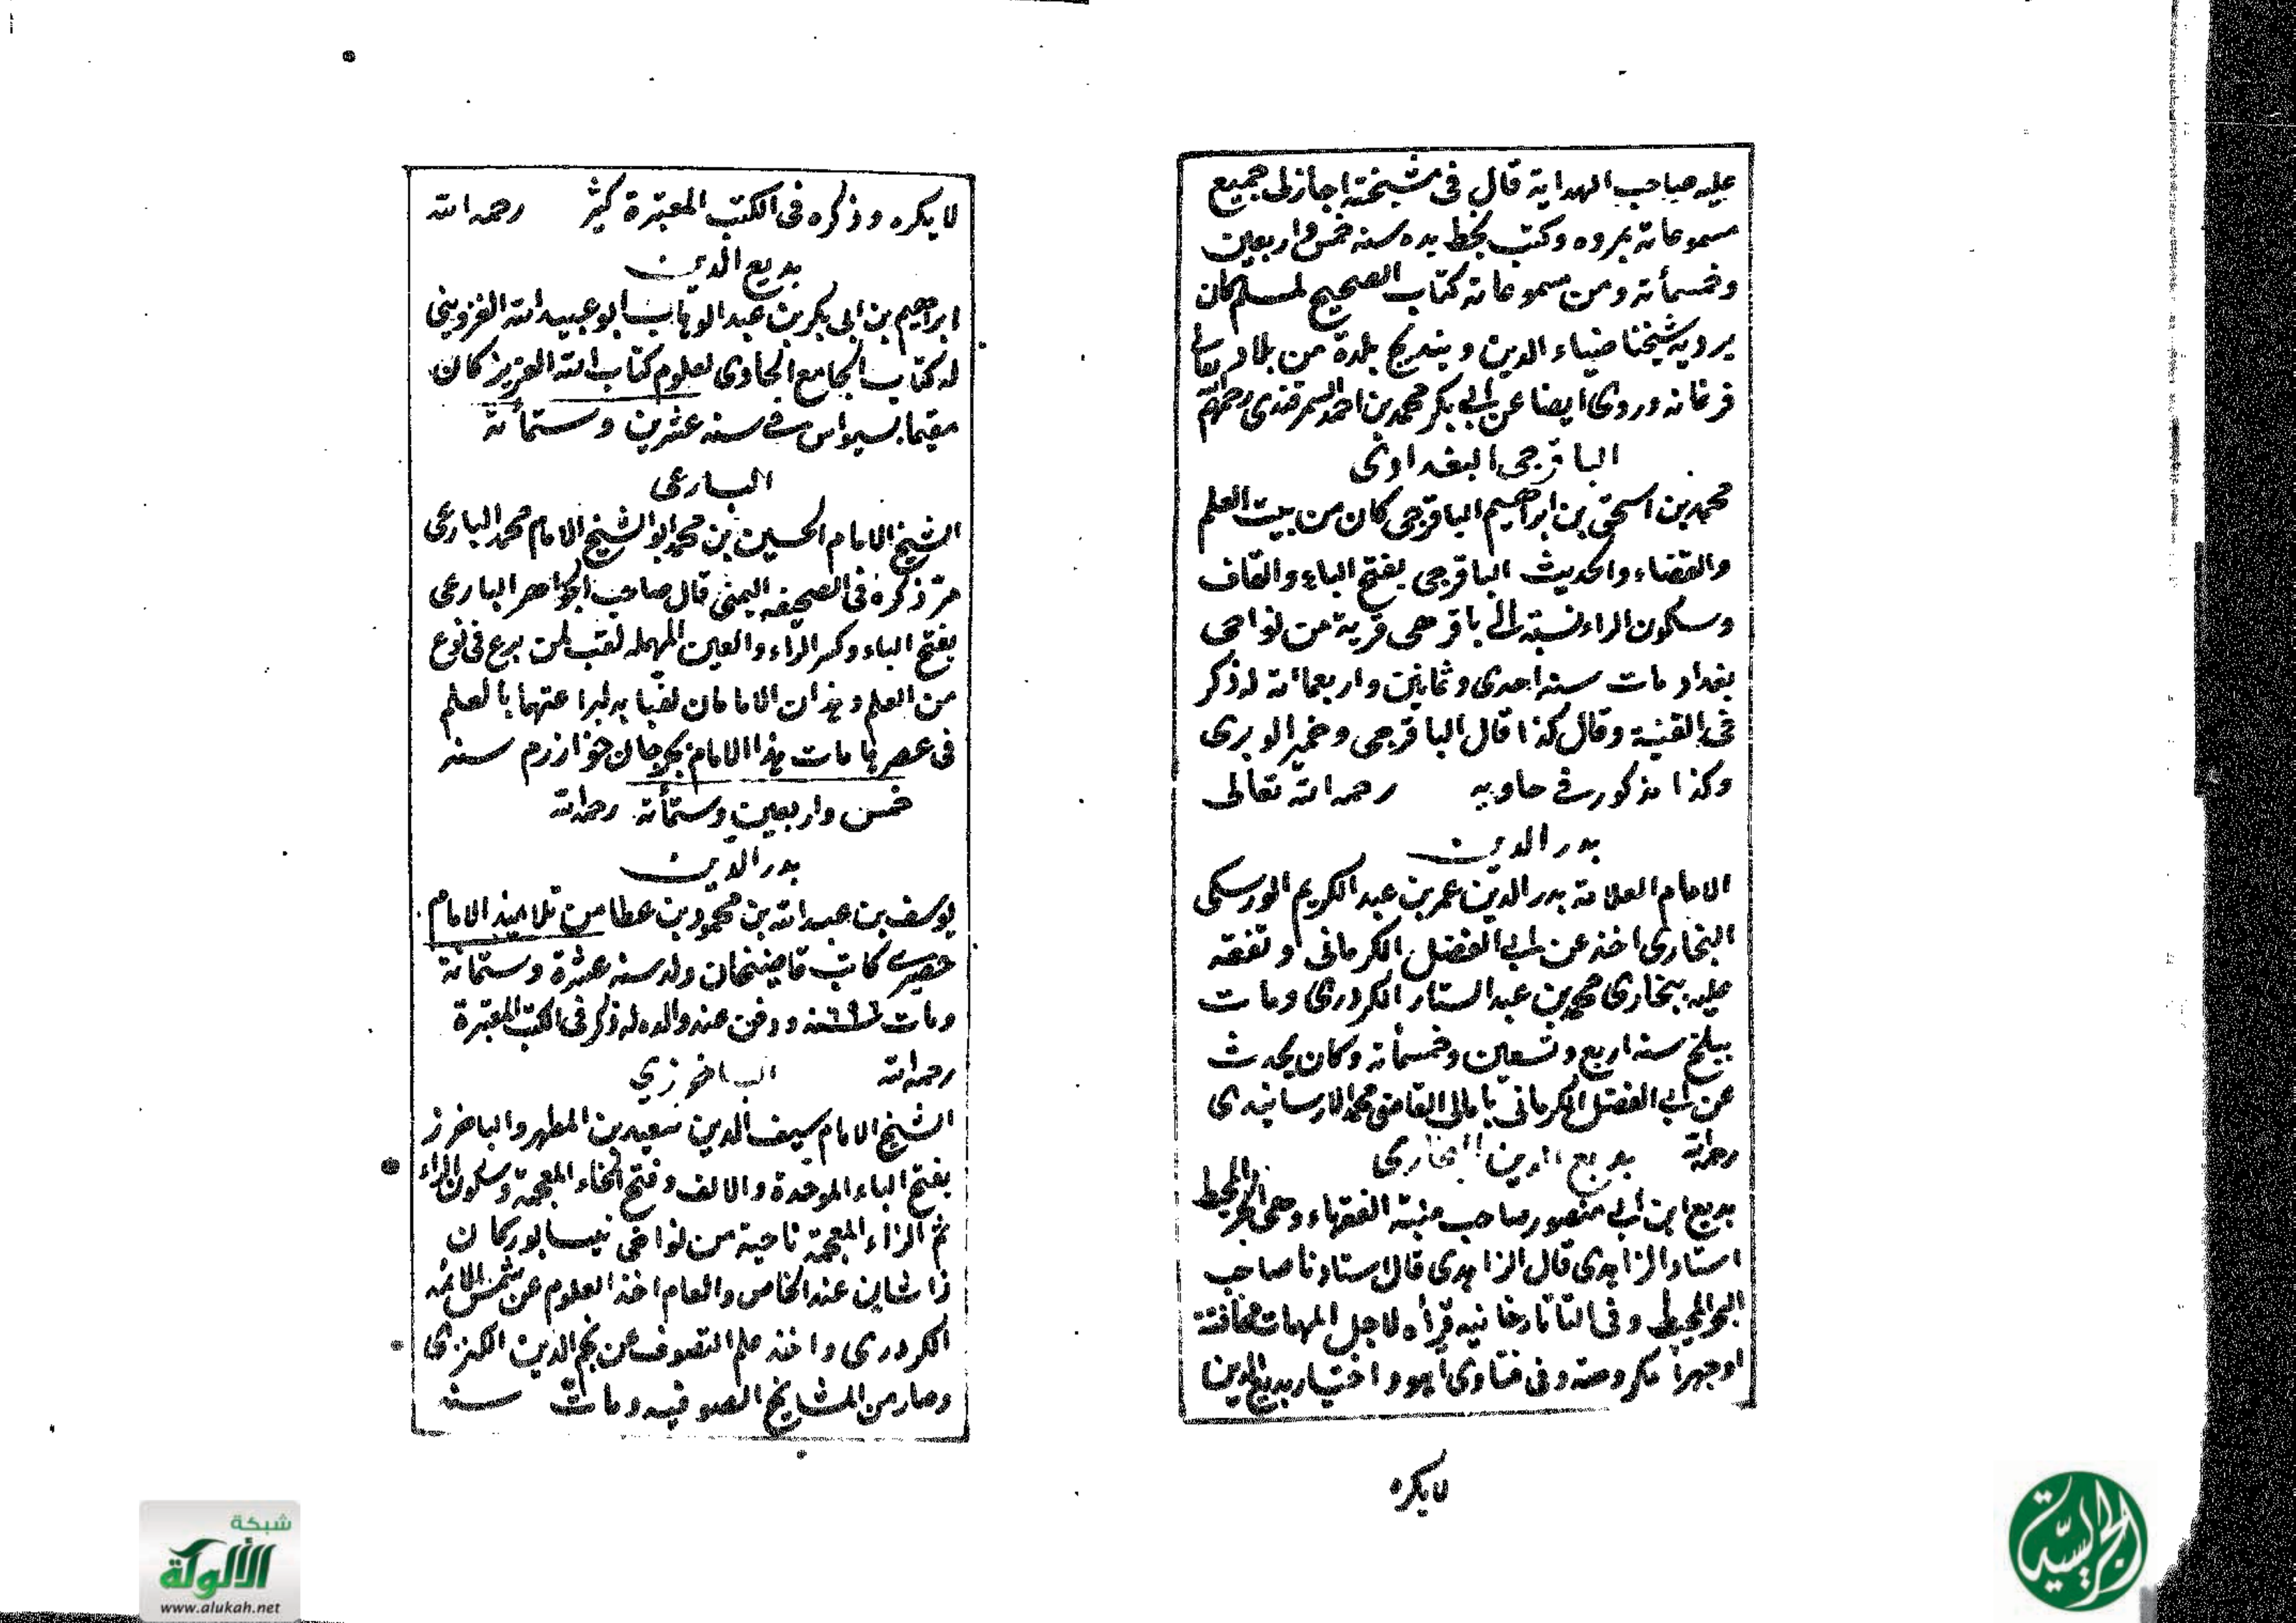 عليه صاحب الهداية قال فى مشيخته اجاز لى جميع
مسموعاته بمروه وكتب بخط يده سنه خمس واربعين
وخمسمأته ومن مسموعاته كتاب الصحيح لمسلم كان
يرديه شيخنا ضياء الدين وبنديج بلدة من بلاد يقال
فرغانه وروى ايضا عن ابى بكر محمد بن احمد السمرقندى رحمهم
الباقرجى البغدادى
محمد بن اسحق بن ابراهيم الباقرجى كان من بيت العلم
والقضاء والحديث الباقرجى بفتح الباء والقاف
وسكون الراء نسبته الى باقرحى قرية من نواحى
بغداد مات سنه احدى وثمانين واربعمائة له ذكر
فى القنية وقال كذا قال الباقرجى وخمير الوبرى
وكذا مذكور فى حاويه رحمه الله تعالى
بدر الدين
الامام العلامة بدر الدين عمر بن عبد الكريم الورسكى
البخارى اخذ عن ابى الفضل الكرمانى وتفقه
عليه ببخارى محمد بن عبد الستار الكردرى ومات
ببلخ سنه اربع وتسعين وخمسمأته وكان يحدث
عن ابى الفضل الكرمانى بامالى القاضى محمد الارسانيدى
رحمه الله بديع الدين البخارى
بديع ابن ابى منصور صاحب منية الفقهاء وحى البحر المحيط
استاد الزاهدى قال الزاهدى قال استادنا صاحب
البحر المحيط وفى التاتارخانيه قرأه لاجل المهمات مخافتة
اوجهرا مكروهة وفى فتاوى آهو واختيار بديع الدين
لايكره
لايكره وذكره فى الكتب المعتبرة كثير رحمه الله
بديع الدين
ابراهيم بن ابى بكر بن عبد الوهاب ابو عبيد الله القزوينى
له كتاب الجامع الحاوى لعلوم كتاب الله العزيز كان
مقيما بسيواس فى سنه عشرين وستمأئة
البارعى
الشيخ الامام الحسين بن محمد ابو الشيخ الامام محمد البارعى
مر ذكره فى الصحيفه اليمنى قال صاحب الجواهر البارعى
بفتح الباء وكسر الراء والعين المهمله لقب لمن برع فى نوع
من العلم وهذان الامامان لقبا به لبراعتهما بالعلم
فى عصرها مات هذا الامام بجرجان خوارزم سنه
خمس واربعين وستمأته رحمه الله
بدر الدين
يوسف بن عبد الله بن محمود بن عطا من تلاميذ الامام
حصيرى كاتب قاضيخان ولد سنه عشرة وستمائة
ومات سنه ٦٩٦ ودفن عند والده له ذكر فى الكتب المعتبرة
رحمه الله الباخرزي
الشيخ الامام سيف الدين سعيد بن المطهر والباخرز
بفتح الباء الموحدة والالف وفتح الخاء المعجمة وسكون الراء
ثم الزاء المعجمة ناحية من نواحى نيسابور كان
ذا شاين عند الخاص والعام اخذ العلوم عن شمس الائمه
الكردرى واخذ علم التصوف عن نجم الدين الكبرى
وصار من المشايخ الصوفيه ومات سنه
شبكة
الألوكة
www.alukah.net